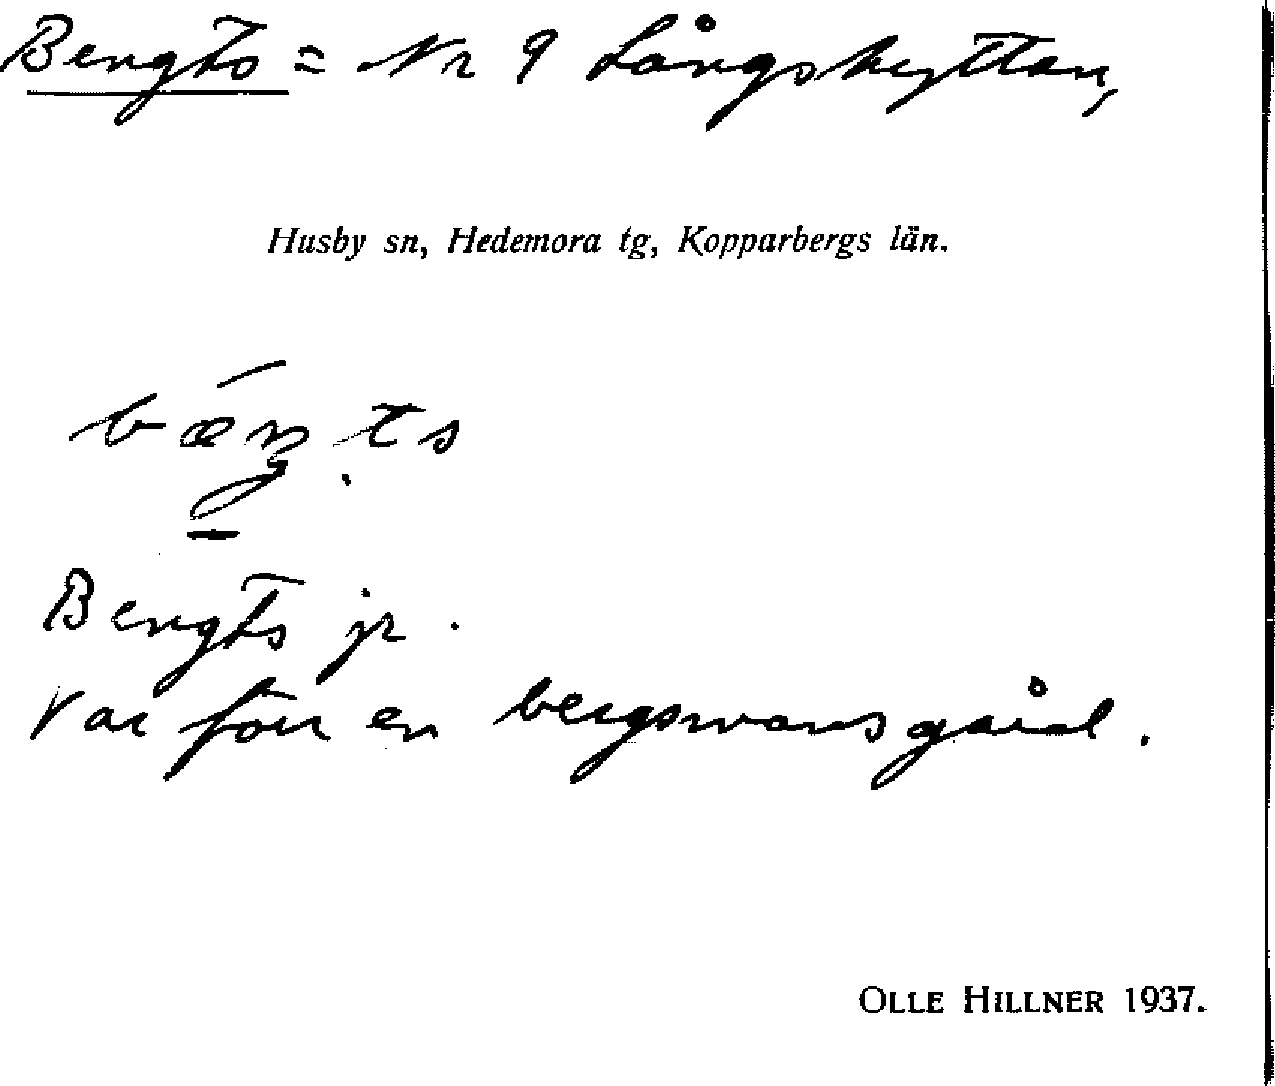 Bengts = Nr 9 Långshyttan,
Husby sn, Hedemora tg, Kopparbergs län.
bæŋ.ts
Bengts jr.
Var förr en bergsmansgård.
OLLE HILLNER 1937.